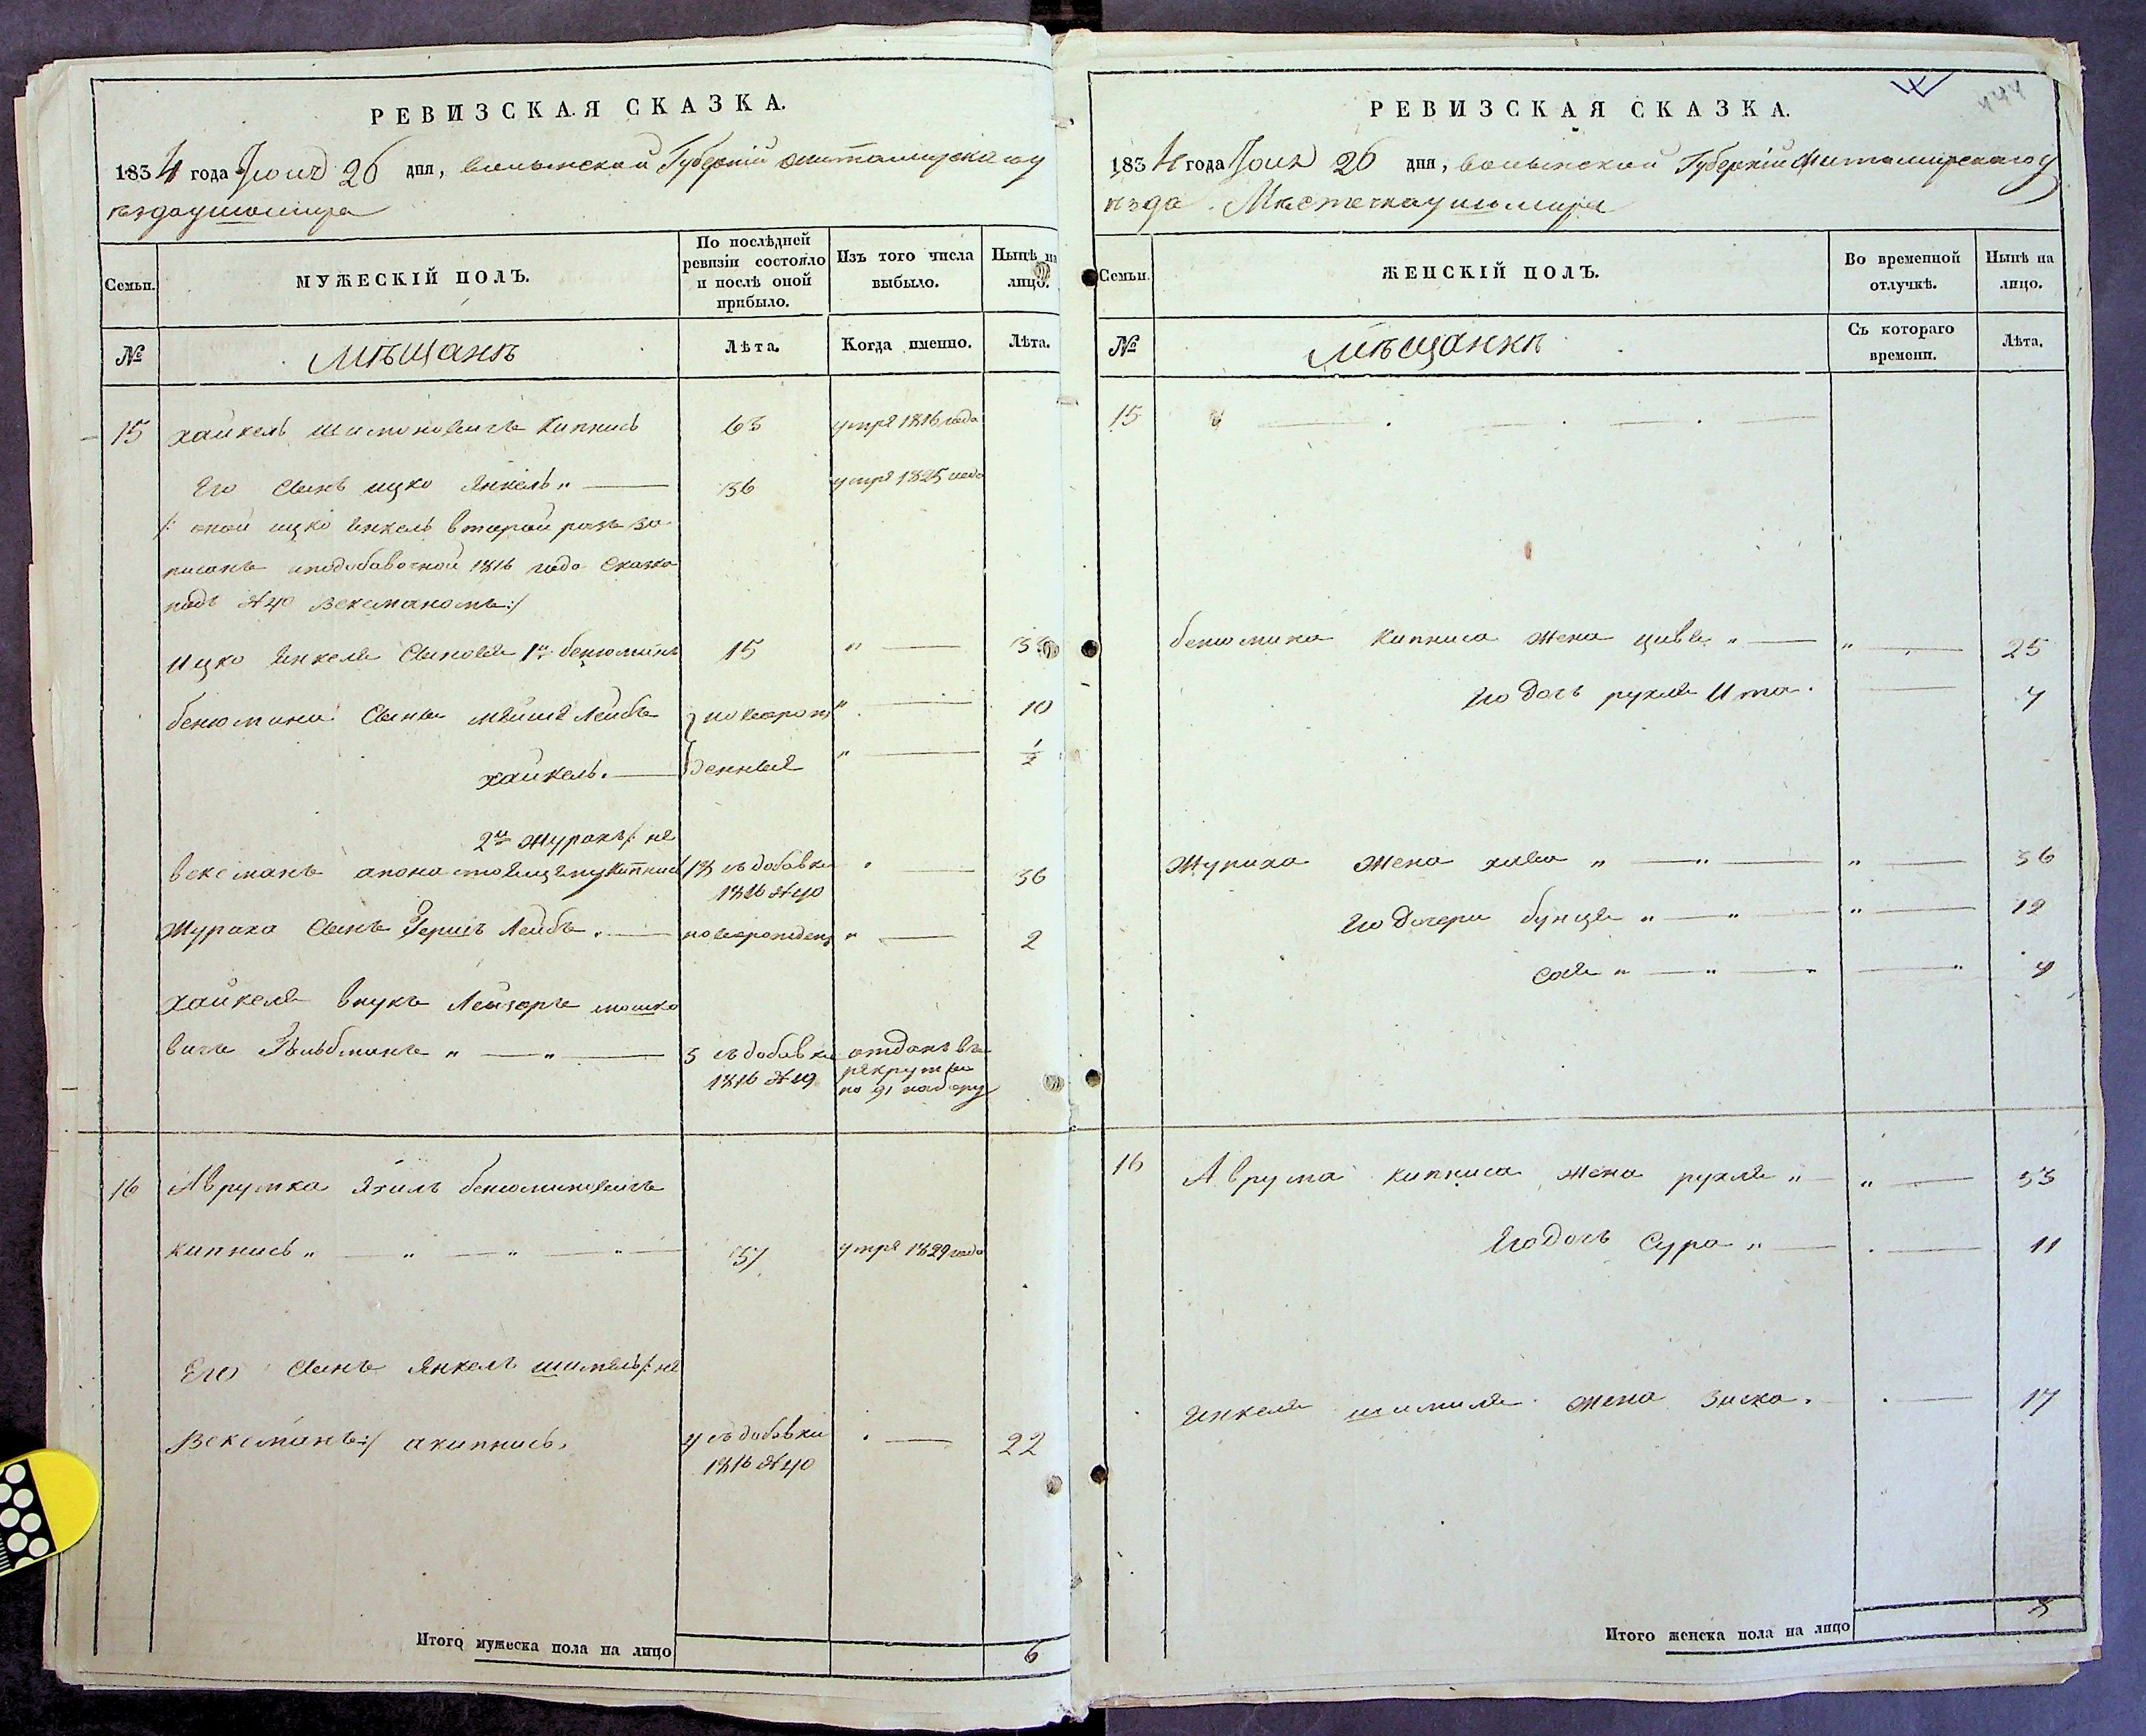 РЕВИЗСКАЯ СКАЗКА.
1834 года Июня 26 дня, волынской Губернiи житомирскаго у
ѣзда ушомира
Семьи.
МУЖЕСКIЙ ПОЛЪ.
По послѣдней ревизiи состояло и послѣ оной прибыло.
Изъ того числа выбыло.
Нынѣ на лицо.
№
Мѣщанѣ
Лѣта.
Когда именно.
Лѣта.
15 хайкель шимоновичъ Кипнись 63 умре 1816 года
Его Сынъ ицко Янкель „ — 36 умре 1825 года
/: оной ицко Янкель второй разъ за
писанъ 1816 года Сказко
подъ №40 Вексманомъ:/
Ицко Янкеля Сыновя 1й бенюминъ 15 „ — 33
бенюмина Сыны мейше Лейбъ новорож „ — 10
хайкель. — денные „ — ½
2й Журахъ /: не
вексманъ Кипнись 18 съ добавки 1816 №40 „ — 36
Жураха Сынъ Гершъ Лейбъ „ — новорожден „ — 2
Хайкеля внукъ Лейзеръ мошко
вичъ „ — „ — 5 съ добавки 1816 №49 отданъ въ рекруты по 91 набору
16 Аврумка Яхилъ бенюминовичъ
кипнись „ — „ — „ — „ — 37 умре 1829 года
Его Сынъ Янкель шимель /: не
Вексманъ:/ акипнись. 4 съ добавки 1816 №40 „ — 22
Итого мужеска пола на лицо 6
444
РЕВИЗСКАЯ СКАЗКА.
1834 года Июня 26 дня, волынской Губернiи Житомирскаго у
ѣзда Мѣстечка ушомира
Семьи.
ЖЕНСКIЙ ПОЛЪ.
Во временной отлучкѣ.
Нынѣ на лицо.
№
мѣщанкѣ
Съ котораго времени.
Лѣта.
15
бенюмина Кипниса Жена цивя „ — „ — 25
Его дочь рухля Ита. — 7
Жураха Жена хава „ — „ — „ — 36
Его дочери бунця „ — „ — „ — 12
Сося „ — „ — „ — „
16 Аврума кипниса жена рухля „ — „ — 53
Его дочь Сура „ — . — 11
Янкеля шимиля жена Зиска. . — 17
Итого женска пола на лицо